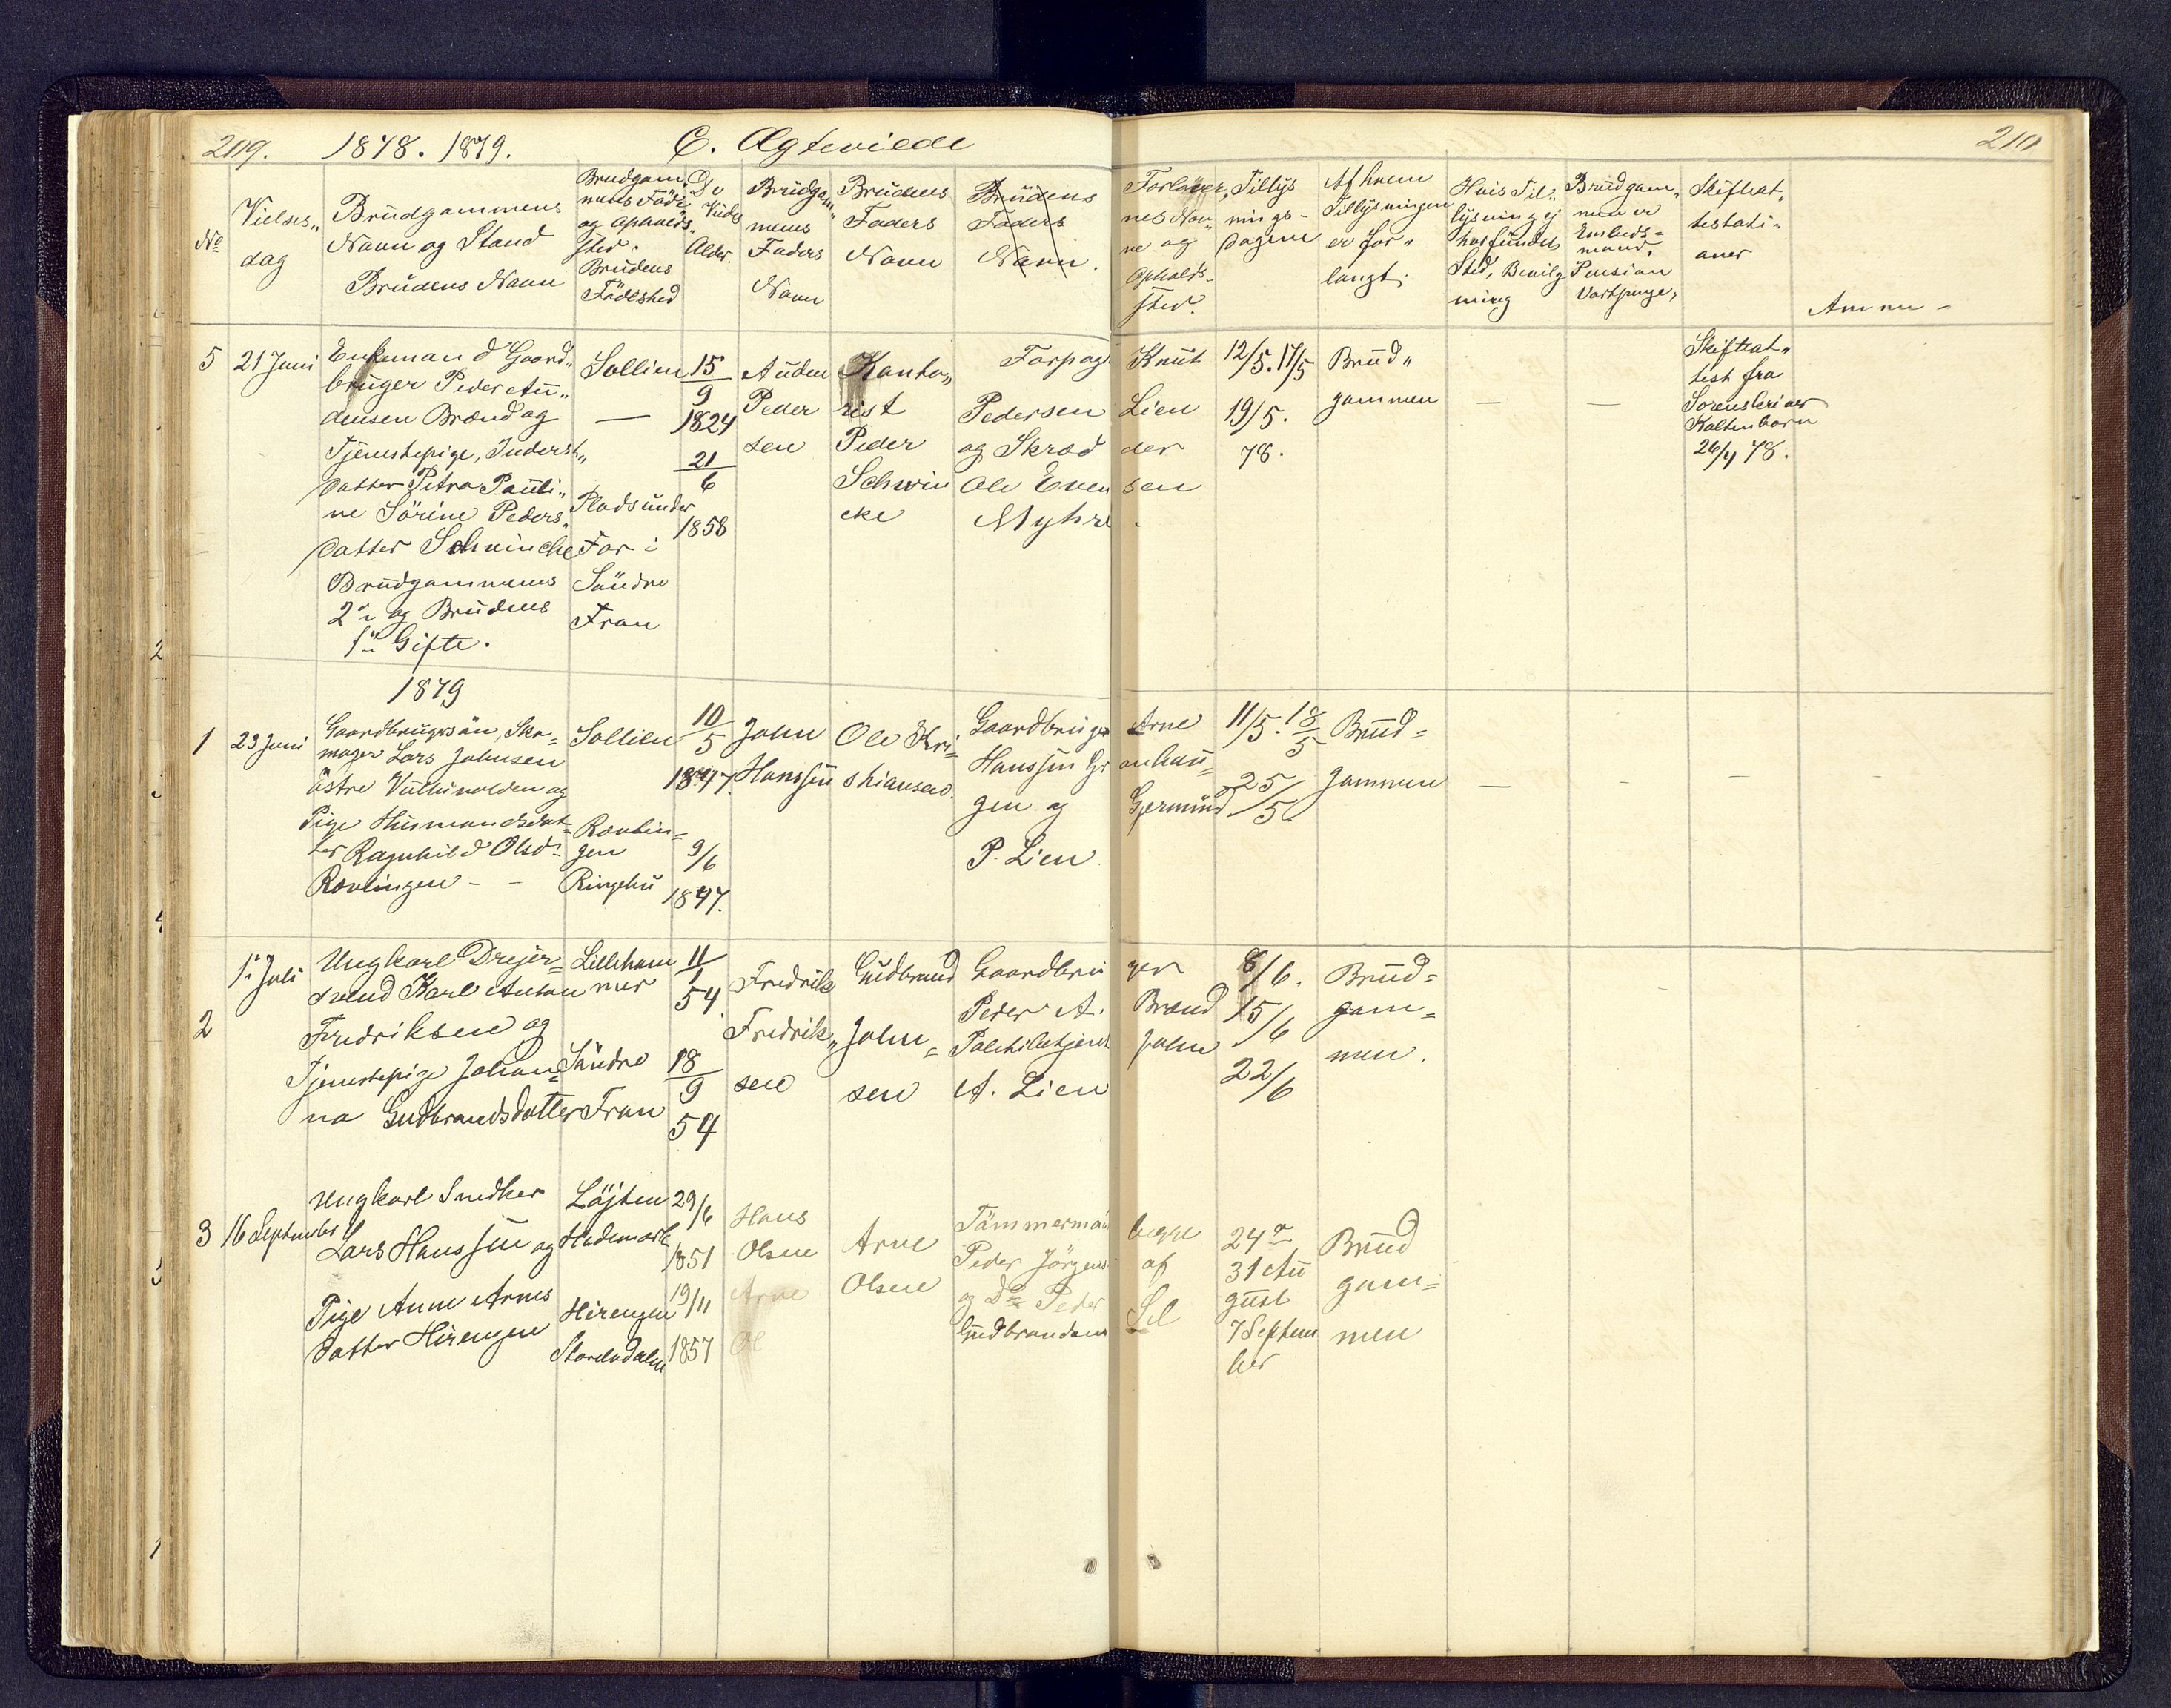 209. 1878. 1879. C. Ægteviede 210
No
Vielses„
dag
Brüdgommens
Navn og Stand
Brüdens Navn
Brudgom„
mens Föde
og Opholds„
sted.
Brüdens
Födested
De
Viedes
Alder.
Brüdgom„
mens
Faders
Navn
Brüdens
Faders
Navn
Brüdens
Faders
Navn.
Forlover„
nes Nav„
ne og
Opholds„
sted.
Tillys
nings-
Dagene
Af hvem
Tillysningen
er for„
langt.
Hvis Til„
lysning ej
har fundet
Sted, Bevilg
ning
Brüdgom„
men er
Embeds=
mand,
Pension
Skifteat„
testati„
oner
Anm
5
21 Juni
Enkemand Gaard„
brüger Peder Aü„
densen Brænd og
Tjenestepige, Inderst„
datter Petra Pauli„
ne Sörine Peders„
datter Schwincke
Brüdgommens
2n og Brüdens
1ste Gifte.
Sollien
—
Plads under
For i
Söndre
Fron
15
9
1824
21
6
1858
Auden
Peder
sen
Konto„
rist
Peder
Schwin
cke
Forpagt Knüt
Pedersen Lien
og Skræd der
Ole Even sen
Myhre.
12/5. 17/5
19/5.
78.
Brüd„
gommen
—
—
Skifteat„
test fra
Sorenskriver
Koltenborn
26/4 78.
1879
1
23 Juni
Gaardbrugersön, Sko=
mager Lars Johnsen
östre Vülüvolden og
Pige Husmandsdat=
ter Ragnhild Olsd=
Rævlingen - -
Sollien
Rævlin=
gen
Ringebü
10
5
1847.
9/6
1847.
John
Hanssen
Ole Kri=
stiansen.
Gaardbrüger Arne
Hanssen Gr
gen og Gjermünd
P. Lien
11/5. 18
5
25/5
Brüd=
gommen
—
—
—
—
2
1. Juli
Ungkarl Drejer=
svend Karl Anton
Fredriksen og
Tjenestepige Johan=
na Gudbrandsdatter
Lilleham
mer
Söndre
Fron
11
1
54.
18
9
54
Fredrik
Fredrik„
sen
Güdbrand
John=
sen
Gaardbrü ger
Peder A. Brænd
John
A. Lien
8/6.
15/6
22/6
Brüd=
gom=
men.
3
16 September
Ungkarl Snedker
Lars Hanssen og
Pige Anne Arnes
datter Hirengen
Löjten
Hedemark
Hirengen
Storelvdalen
29/6
1851
19/11
1857
Hans
Olsen
Arne
Ol
Arne
Olsen
Tömmermænd begge
Peder Jörgens af
og Do Peder Sol
Güdbrandsen
24de
31 Aü
güst
7 Septem
ber
Brüd
gom=
men